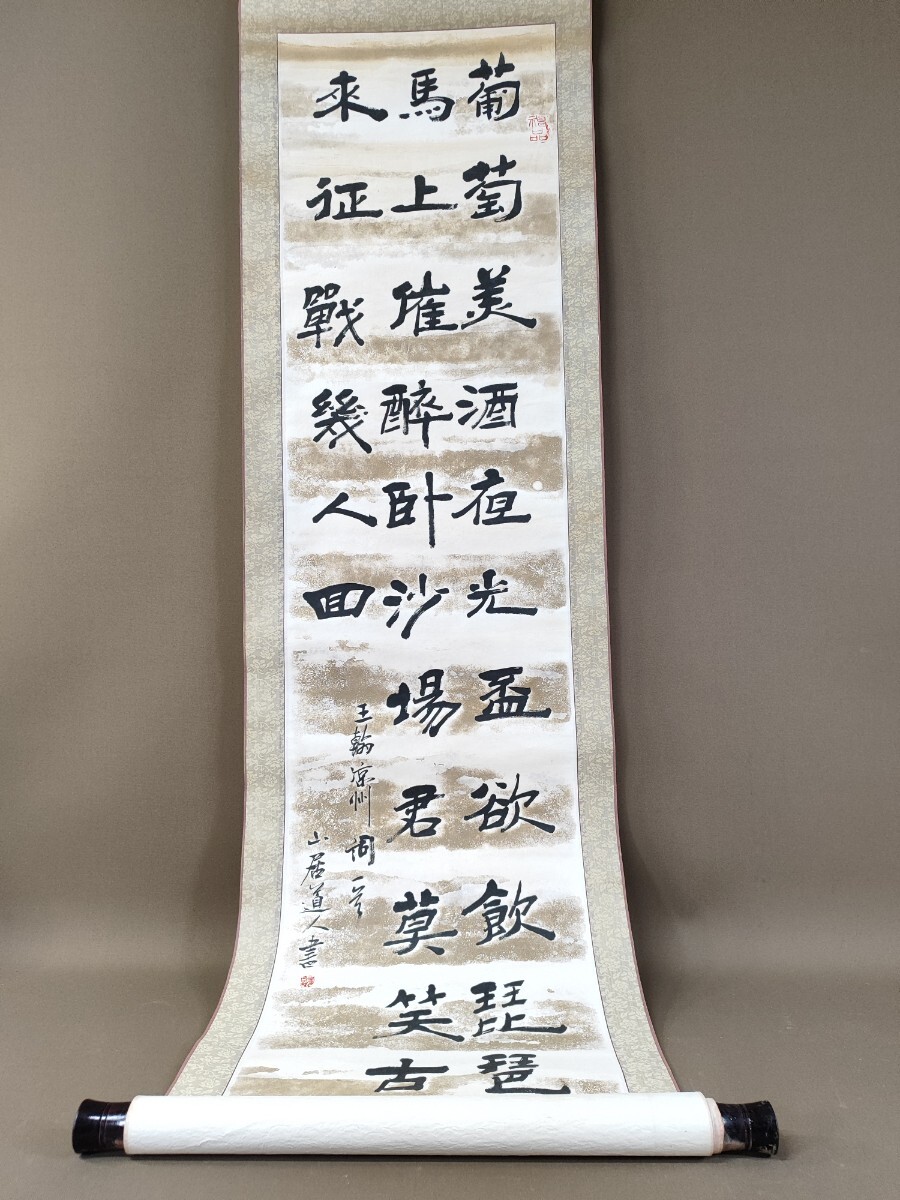 葡萄美酒夜光盃欲飲琵琶
馬上催醉卧沙場君莫笑古
來征戰幾人回
王翰涼州詞一首
山居道人書